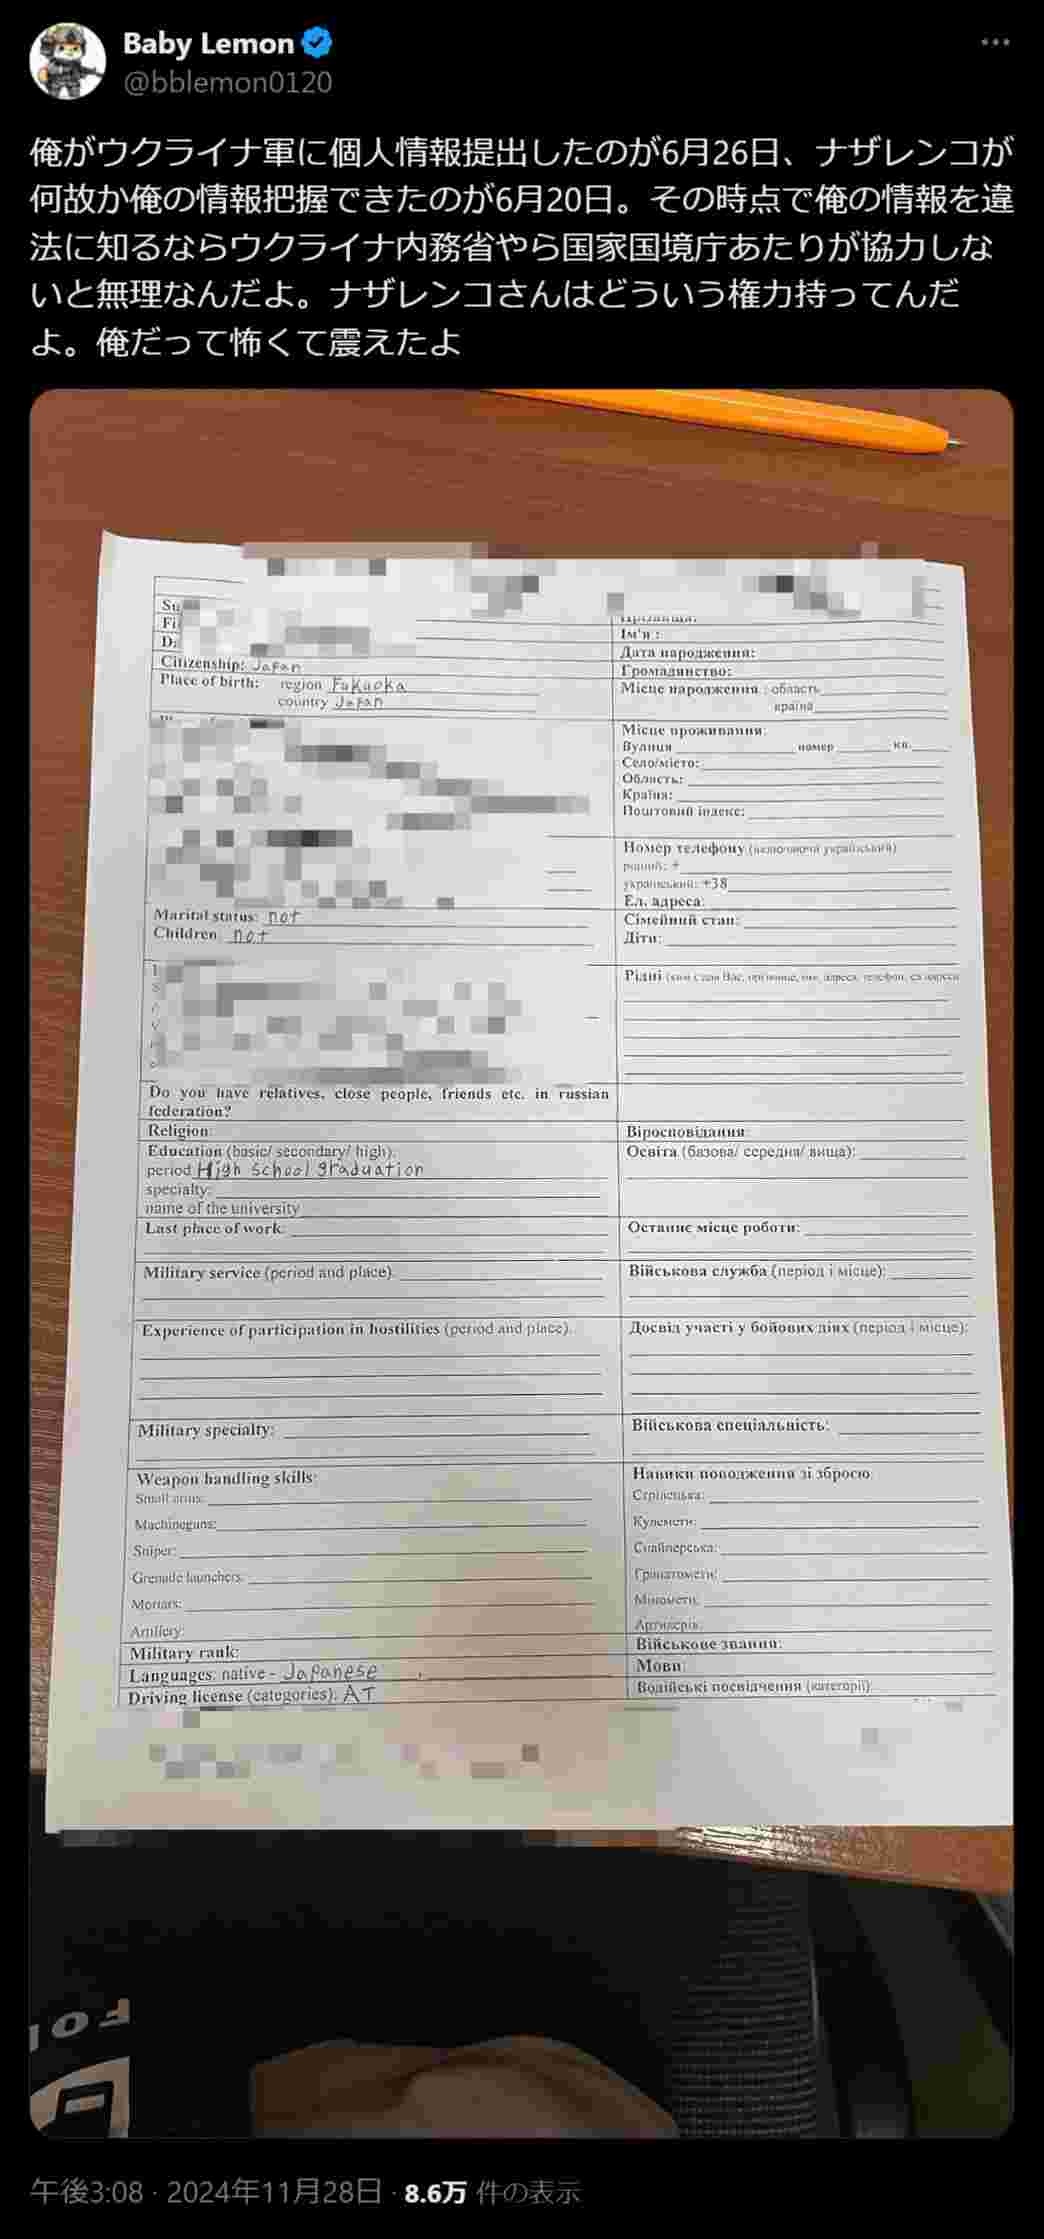 Baby Lemon
@bblemon0120
俺がウクライナ軍に個人情報提出したのが6月26日、ナザレンコが
何故か俺の情報把握できたのが6月20日。その時点で俺の情報を違
法に知るならウクライナ内務省やら国家国境庁あたりが協力しな
いと無理なんだよ。ナザレンコさんはどういう権力持ってんだ
よ。俺だって怖くて震えたよ
Su
Fi
Da
Citizenship: Japan
Place of birth: region Fukuoka
country Japan
Marital status: not
Children: not
Do you have relatives, close people, friends etc. in russian
federation?
Religion:
Education (basic/ secondary/ high):
period High school graduation
specialty:
name of the university
Last place of work:
Military service (period and place):
Experience of participation in hostilities (period and place):
Military specialty:
Weapon handling skills:
Small arms:
Machineguns:
Sniper:
Grenade launchers:
Mortars:
Artillery:
Military rank:
Languages: native - Japanese
Driving license (categories): AT
Ім'я :
Дата народження:
Громадянство:
Місце народження : область
країна
Місце проживання:
Вулиця номер кв.
Село/місто:
Область:
Країна:
Поштовий індекс:
Номер телефону (включаючи український)
рідний: +
український: +38
Ел. адреса:
Сімейний стан:
Діти:
Рідні
Віросповідання:
Освіта (базова/ середня/ вища):
Останнє місце роботи:
Військова служба (період і місце):
Досвід участі у бойових діях (період і місце):
Військова спеціальність:
Навики поводження зі зброєю:
Стрілецька:
Кулемети:
Снайперська:
Гранатомети:
Міномети:
Артилерія:
Військове звання:
Мови:
Водійські посвідчення (категорії):
午後3:08 · 2024年11月28日 · 8.6万 件の表示